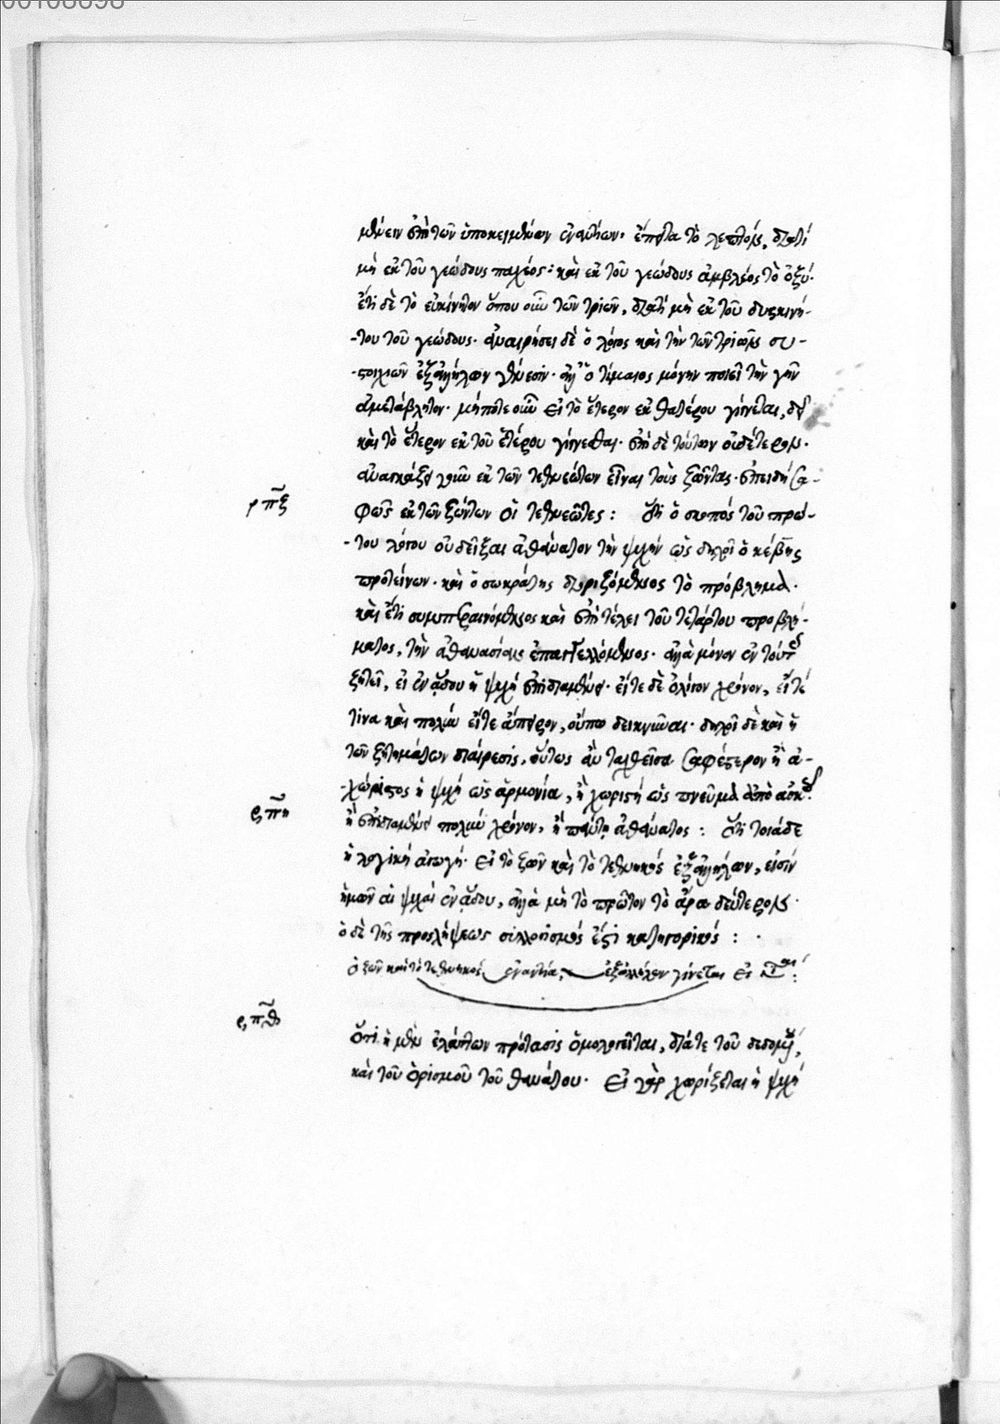 μένειν ἐπὶ τῶν ὑποκειμένων ἐναντίων· ἔπειτα τὸ λεπτομερὲς, διατί
μὴ ἐκ τοῦ γεώδους παχέος· καὶ ἐκ τοῦ γεώδους ἀμβλέος τὸ ὀξύ·
ἔτι δὲ τὸ εὐκίνητον ὅπου οὖν τῶν τριῶν, διατί μὴ ἐκ τοῦ δυσκινή-
-του τοῦ γεώδους· ἀναιρήσει δὲ ὁ λόγος καὶ τὴν τῶν τριῶν συ-
-στοιχιῶν ἐξ ἀλλήλων γένεσιν· ἀλλ' ὁ τίμαιος μόνην ποιεῖ τὴν γῆν
ἀμετάβλητον· μήποτε οὖν εἰ τὸ ἕτερον ἐκ θατέρου γίνεται, δεῖ
καὶ τὸ ἕτερον ἐκ τοῦ ἑτέρου γίνεσθαι· ἐπὶ δὲ τούτων οὐδέτερον·
ἀναγκάζει γοῦν ἐκ τῶν τεθνεώτων εἶναι τοὺς ζῶντας· ἐπειδὴ σα-
ρπζ
φῶς ἐκ τῶν ζώντων οἱ τεθνεῶτες: ὅτι ὁ σκοπὸς τοῦ πρώ-
-του λόγου οὐ δεῖξαι ἀθάνατον τὴν ψυχὴν ὡς δηλοῖ ὁ κέβης
προτείνων· καὶ ὁ σωκράτης διοριζόμενος τὸ πρόβλημα·
καὶ ἔτι συμπεραινόμενος καὶ ἐπὶ τέλει τοῦ τετάρτου προβλή-
ματος, τὴν ἀθανασίαν ἐπαγγελλόμενος· ἀλλὰ μόνον ἐν τούτοις
ζητεῖ, εἰ ἐν ᾅδου ἡ ψυχὴ ἐπιδιαμένει· εἴτε δὲ ὀλίγον χρόνον, εἴτε
τινα καὶ πολὺν εἴτε ἄπειρον, οὔπω δείκνυται· δηλοῖ δὲ καὶ ἡ
τῶν ζητημάτων διαίρεσις, οὕτως ἂν ταχθεῖσα σαφέστερον ἢ ἀ-
-χώριστος ἡ ψυχὴ ὡς ἁρμονία, ἢ χωριστὴ ὡς πνεῦμα ἀπὸ ἀσκοῦ
ρπη
ἢ ἐπιδιαμένει πολὺν χρόνον, ἢ πάντῃ ἀθάνατος: ὅτι τοιάδε
ἡ λογικὴ ἀγωγή· εἰ τὸ ζῶν καὶ τὸ τεθνηκὸς ἐξ ἀλλήλων, εἰσὶν
ἡμῶν αἱ ψυχαὶ ἐν ᾅδου, ἀλλὰ μὴν τὸ πρῶτον τὸ ἄρα δεύτερον·
ὁ δὲ τῆς προσλήψεως συλλογισμός ἐστι κατηγορικός:
ὁ ζῶν καὶ τὸ τεθνηκός ἐναντία, ἐξ ἀλλήλων γίνεται
ρπθ
ὅτι ἡ μὲν ἐλάττων πρότασις ὁμολογεῖται, διά τε τοῦ δεδομένου,
καὶ τοῦ ὁρισμοῦ τοῦ θανάτου· εἰ γὰρ χωρίζεται ἡ ψυχὴ